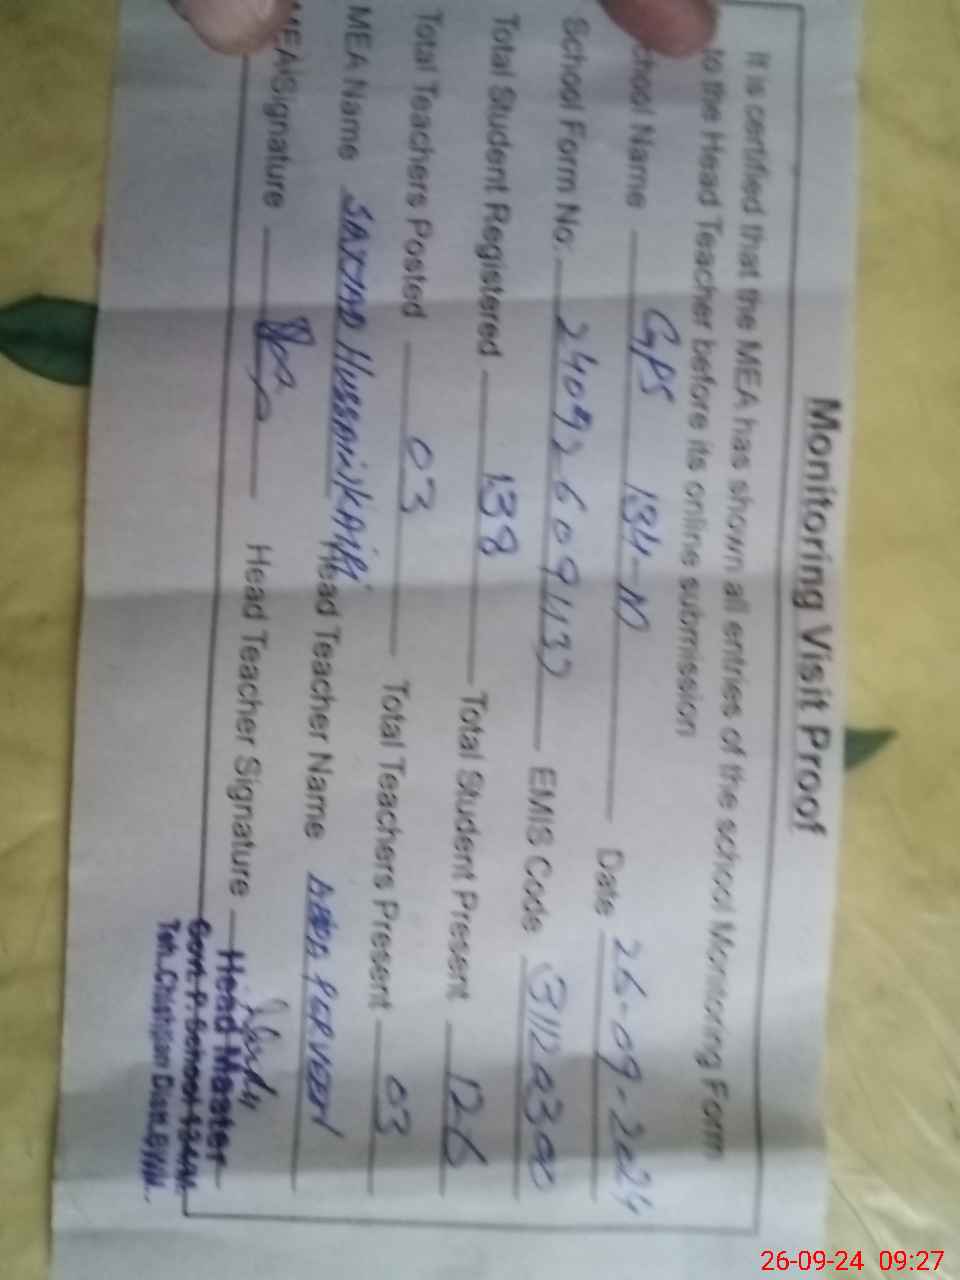 Monitoring Visit Proof
It is certified that the MEA has shown all entries of the school Monitoring Form
to the Head Teacher before its online submission
chool Name GPS 134-M Date 26-09-2024
School Form No. EMIS Code 31120300
Total Student Registered 138 Total Student Present 126
Total Teachers Posted 03 Total Teachers Present 03
MEA Name SAJJAD HUSSAIN Head Teacher Name PERVEEN
MEA Signature Head Teacher Signature
Head Master
Govt. P. School 134/M
Teh. Chishtian Distt. BWN.
26-09-24 09:27